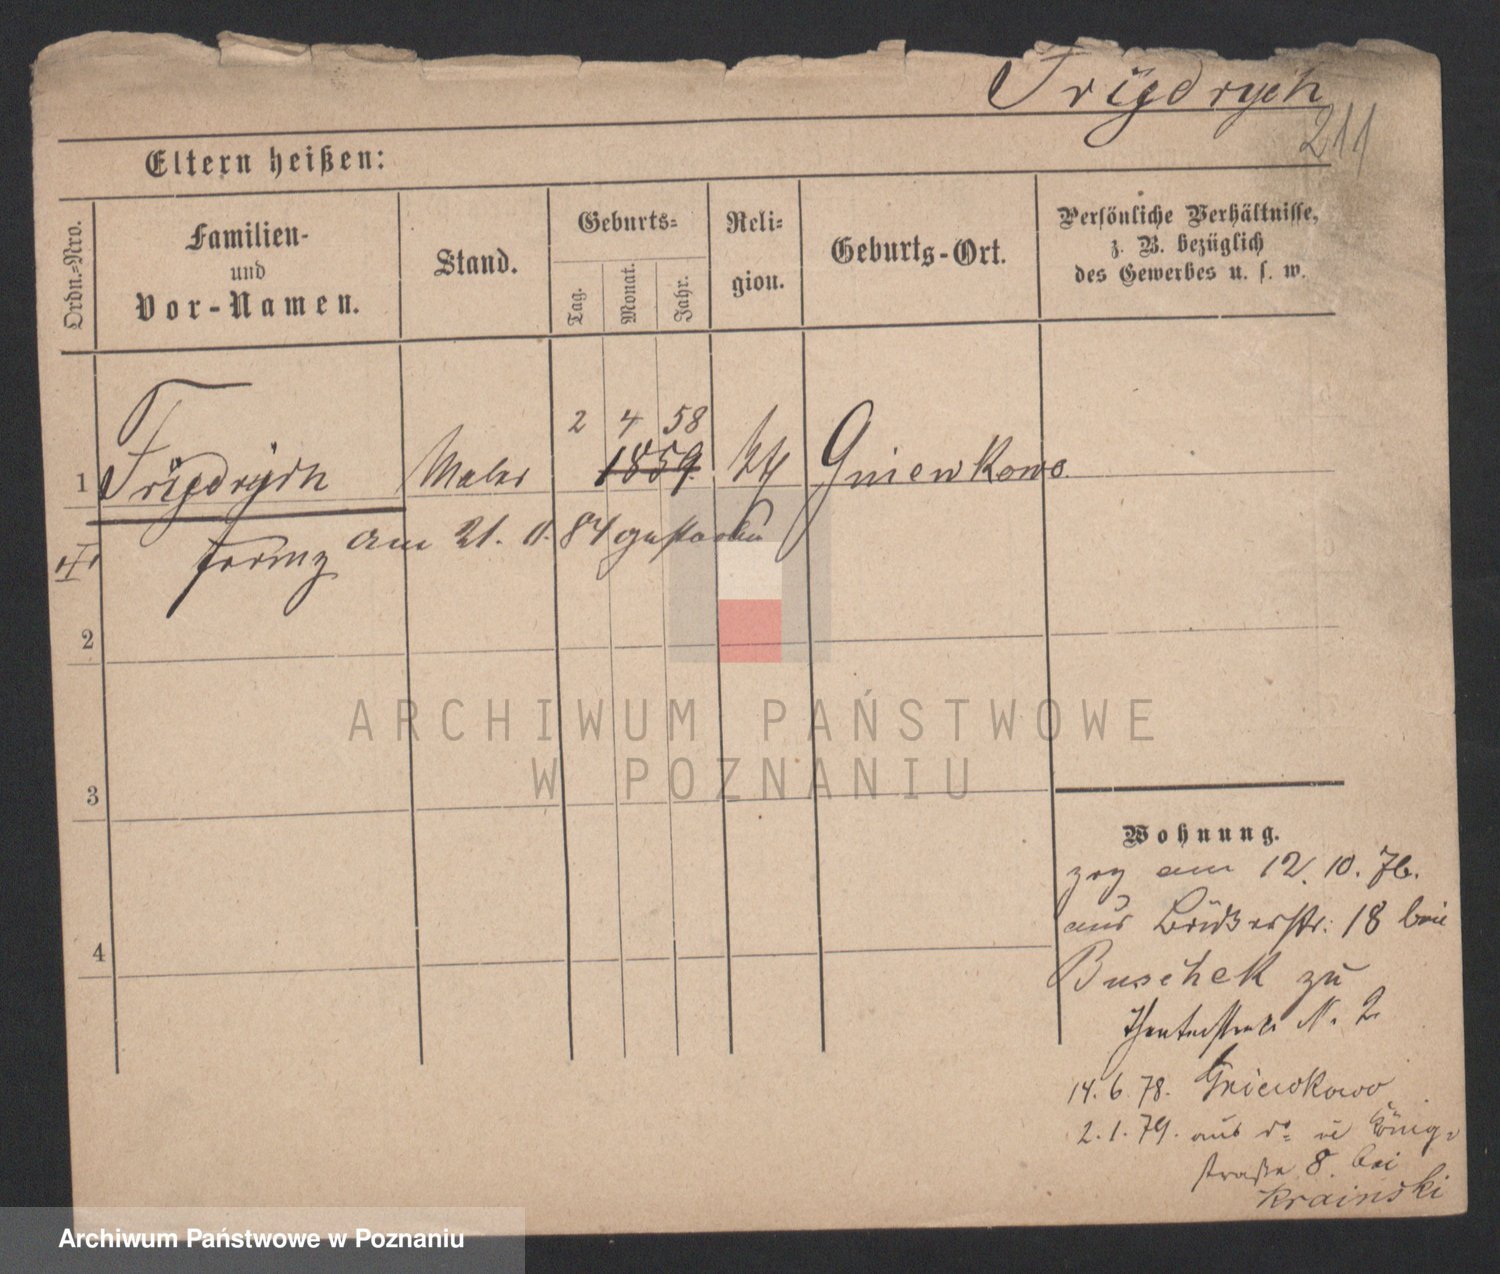 Frÿdrÿch
211
Eltern heißen:
Ordn.-Nro.
Familien-
und
Vor-Namen.
Stand.
Geburts-
Tag.
Monat.
Jahr.
Reli-
gion.
Geburts-Ort.
Persönliche Verhältnisse,
z. B. bezüglich
des Gewerbes u. s. w.
2 4 58
1 Maler 1859. Gniewkowo.
Franz am 21. 84 gestorben
2
3
4
ARCHIWUM PAŃSTWOWE
W POZNANIU
Wohnung.
zog am 12. 10. 76.
aus 18 bei
Buschek zu
Theaterstraße N. 2
14. 6. 78. Gniewkowo
2. 1. 79. aus do in König-
straße 8. bei
Krainski
Archiwum Państwowe w Poznaniu